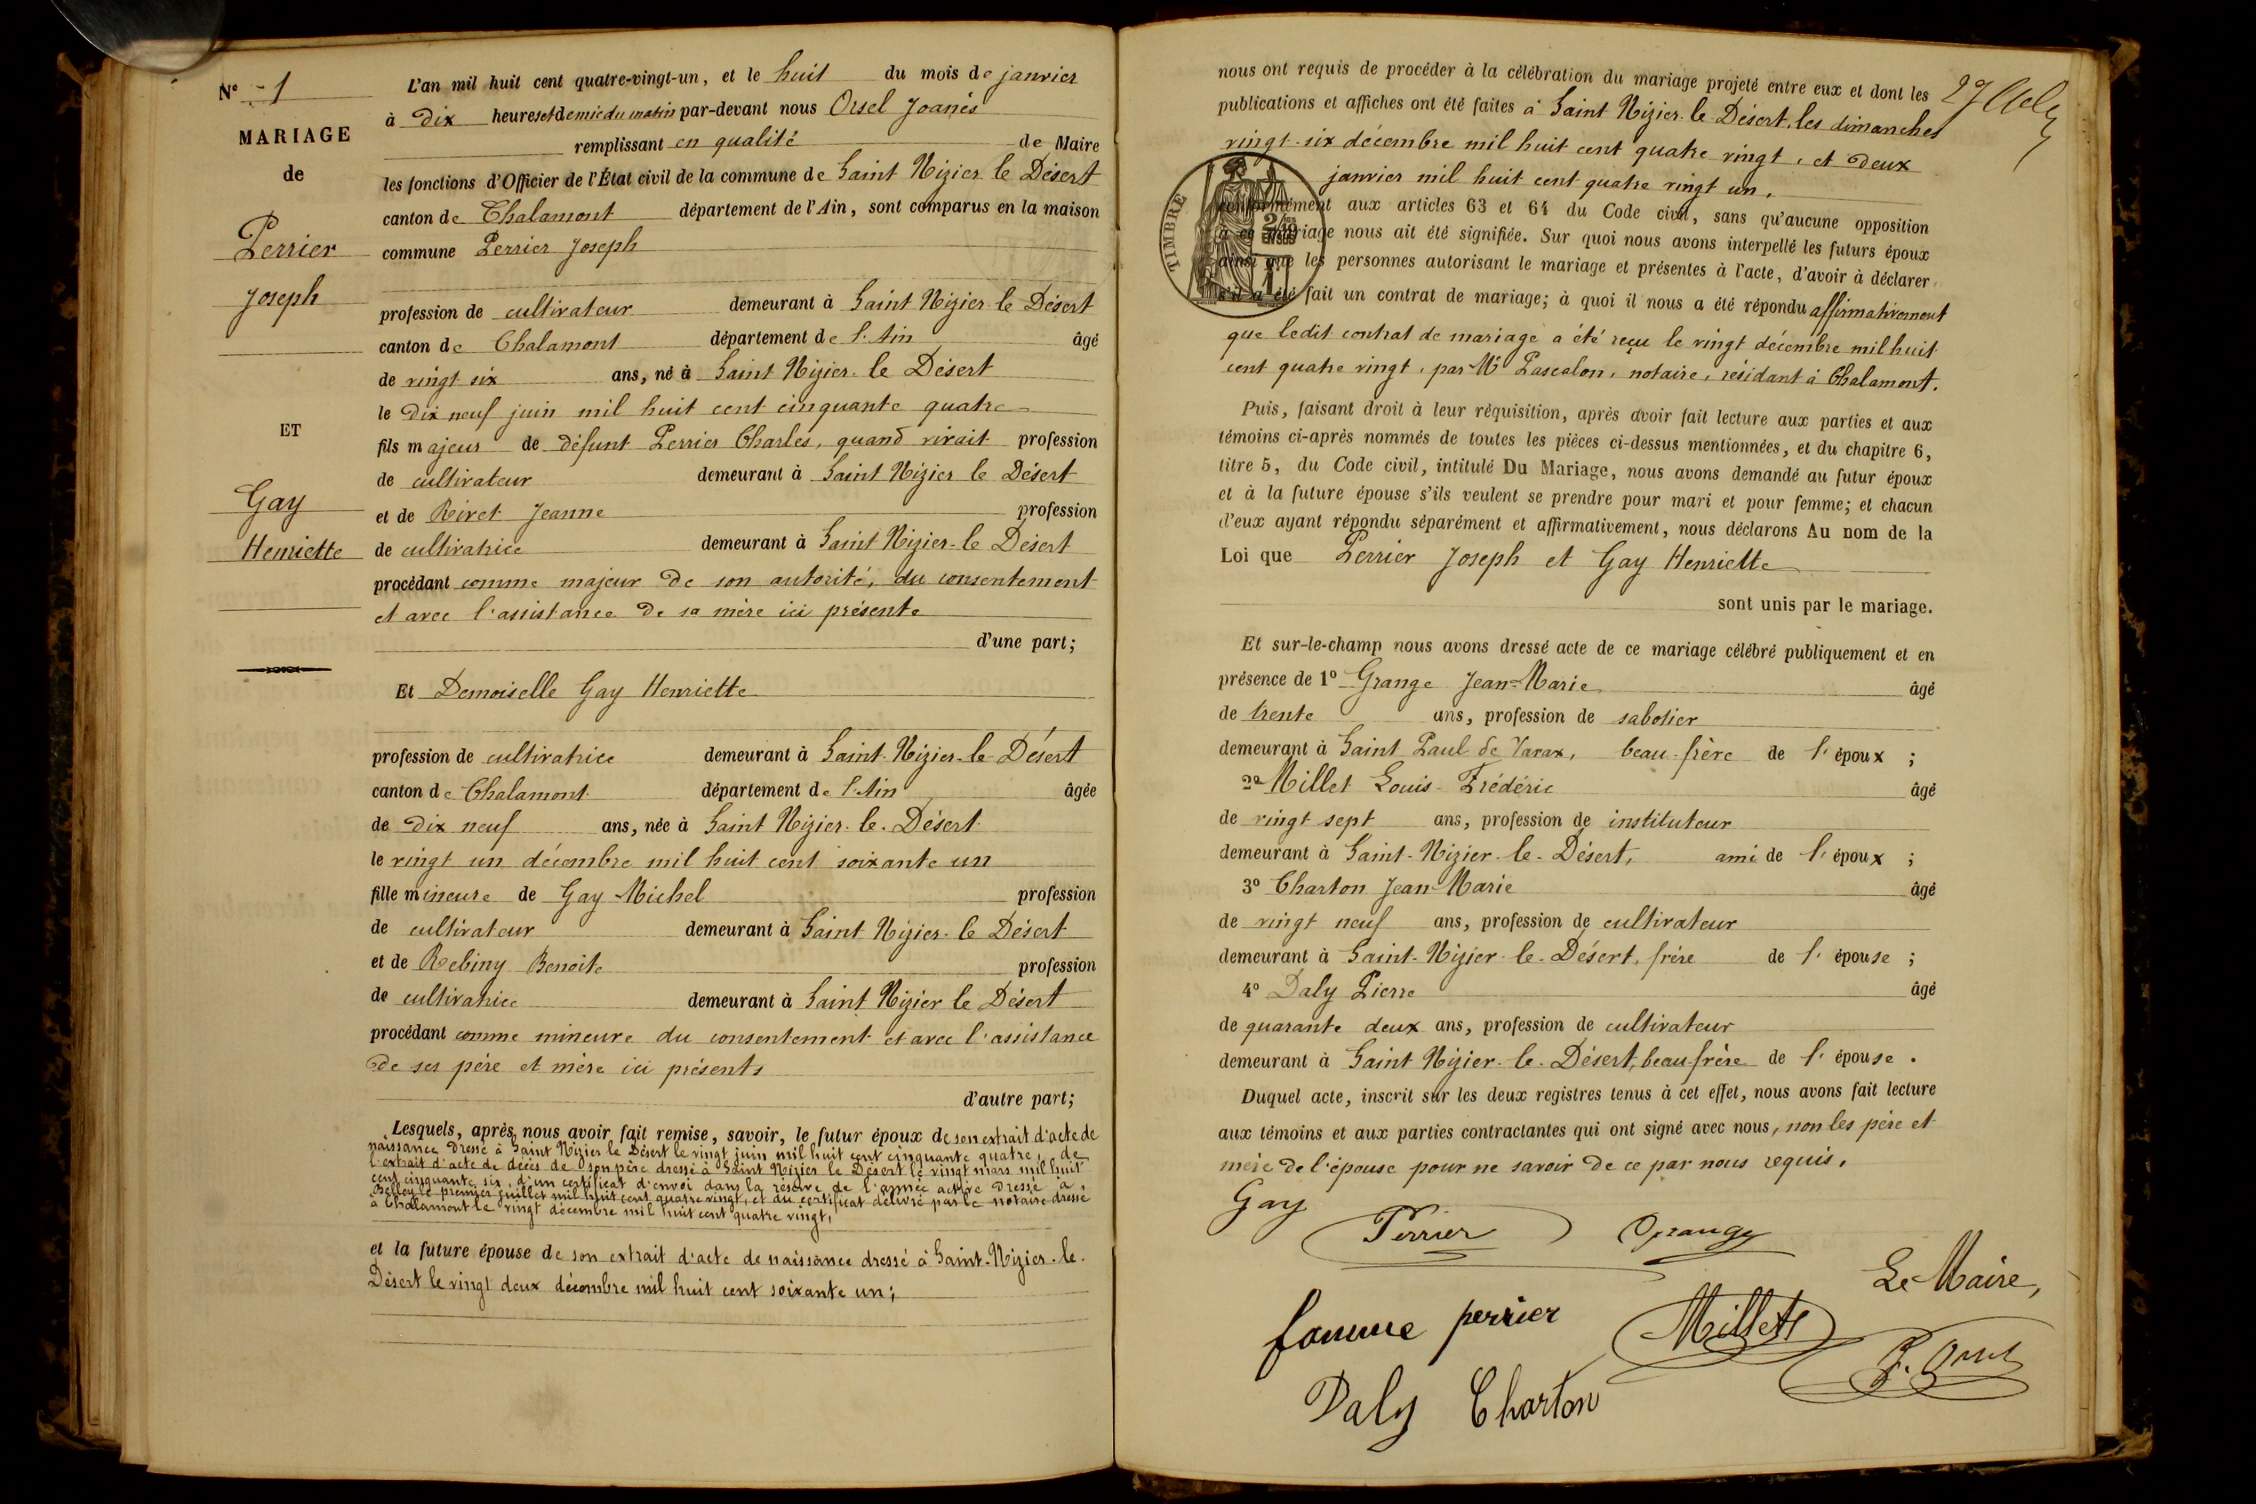 N° 1
MARIAGE
de
Perrier
Joseph
ET
Gay
Henriette
L'an mil huit cent quatre-vingt-un, et le huit du mois de janvier
à dix heures et demie du matin par-devant nous Orsel Joanés
remplissant en qualité de Maire
les fonctions d'Officier de l'État civil de la commune de Saint Nizier le Désert
canton de Chalamont département de l'Ain, sont comparus en la maison
commune Perrier Joseph
profession de cultivateur demeurant à Saint Nizier le Désert
canton de Chalamont département de l'Ain âgé
de vingt six ans, né à Saint Nizier le Désert
le dix neuf juin mil huit cent cinquante quatre
fils majeur de défunt Perrier Charles, quand vivait profession
de cultivateur demeurant à Saint Nizier le Désert
et de Rivet Jeanne profession
de cultivatrice demeurant à Saint Nizier-le Désert
procédant comme majeur de son autorité, du consentement
et avec l'assistance de sa mère ici présente
d'une part;
Et Demoiselle Gay Henriette
profession de cultivatrice demeurant à Saint-Nizier-le Désert
canton de Chalamont département de l'Ain âgée
de dix neuf ans, née à Saint Nizier-le-Désert
le vingt un décembre mil huit cent soixante un
fille mineure de Gay Michel profession
de cultivateur demeurant à Saint Nizier-le Désert
et de Rebiny Benoite profession
de cultivatrice demeurant à Saint Nizier le Désert
procédant comme mineure du consentement et avec l'assistance
de ses père et mère ici présents
d'autre part;
Lesquels, après nous avoir fait remise, savoir, le futur époux de son extrait d'acte de
naissance dressé à Saint Nizier le Désert le vingt juin mil huit cent cinquante quatre, de
l'extrait d'acte de décès de son père dressé à Saint Nizier le Désert le vingt mars mil huit
cent cinquante six, d'un certificat d'envoi dans la réserve de l'armée active dressé à
Belley le premier juillet mil huit cent quatre vingt, et du certificat délivré par le notaire dressé
à Chalamont le vingt décembre mil huit cent quatre vingt,
et la future épouse de son extrait d'acte de naissance dressé à Saint-Nizier-le-
Désert le vingt deux décembre mil huit cent soixante un;
nous ont requis de procéder à la célébration du mariage projeté entre eux et dont les
publications et affiches ont été faites à Saint Nizier-le-Désert, les dimanches
vingt-six décembre mil huit cent quatre vingt, et deux
janvier mil huit cent quatre vingt un,
conformément aux articles 63 et 64 du Code civil, sans qu'aucune opposition
à ce mariage nous ait été signifiée. Sur quoi nous avons interpellé les futurs époux
ainsi que les personnes autorisant le mariage et présentes à l'acte, d'avoir à déclarer
s'il a été fait un contrat de mariage; à quoi il nous a été répondu affirmativement
que ledit contrat de mariage a été reçu le vingt décembre mil huit
cent quatre vingt, par Mᵉ Pascalon, notaire, résidant à Chalamont.
TIMBRE
Puis, faisant droit à leur réquisition, après avoir fait lecture aux parties et aux
témoins ci-après nommés de toutes les pièces ci-dessus mentionnées, et du chapitre 6,
titre 5, du Code civil, intitulé Du Mariage, nous avons demandé au futur époux
et à la future épouse s'ils veulent se prendre pour mari et pour femme; et chacun
d'eux ayant répondu séparément et affirmativement, nous déclarons Au nom de la
Loi que Perrier Joseph et Gay Henriette
sont unis par le mariage.
Et sur-le-champ nous avons dressé acte de ce mariage célébré publiquement et en
présence de 1° Grange Jean-Marie âgé
de trente ans, profession de sabotier
demeurant à Saint Paul de Varax, beau-frère de l'époux ;
2° Millet Louis Frédéric âgé
de vingt sept ans, profession de instituteur
demeurant à Saint-Nizier-le-Désert, ami de l'époux ;
3° Charton Jean-Marie âgé
de vingt neuf ans, profession de cultivateur
demeurant à Saint-Nizier-le-Désert, frère de l'épouse ;
4° Daly Pierre âgé
de quarante deux ans, profession de cultivateur
demeurant à Saint Nizier-le-Désert, beau-frère de l'épouse.
Duquel acte, inscrit sur les deux registres tenus à cet effet, nous avons fait lecture
aux témoins et aux parties contractantes qui ont signé avec nous, non les père et
mère de l'épouse pour ne savoir de ce par nous requis.
Gay Perrier Grange
Le Maire,
famme perrier Millet
Daly Charton